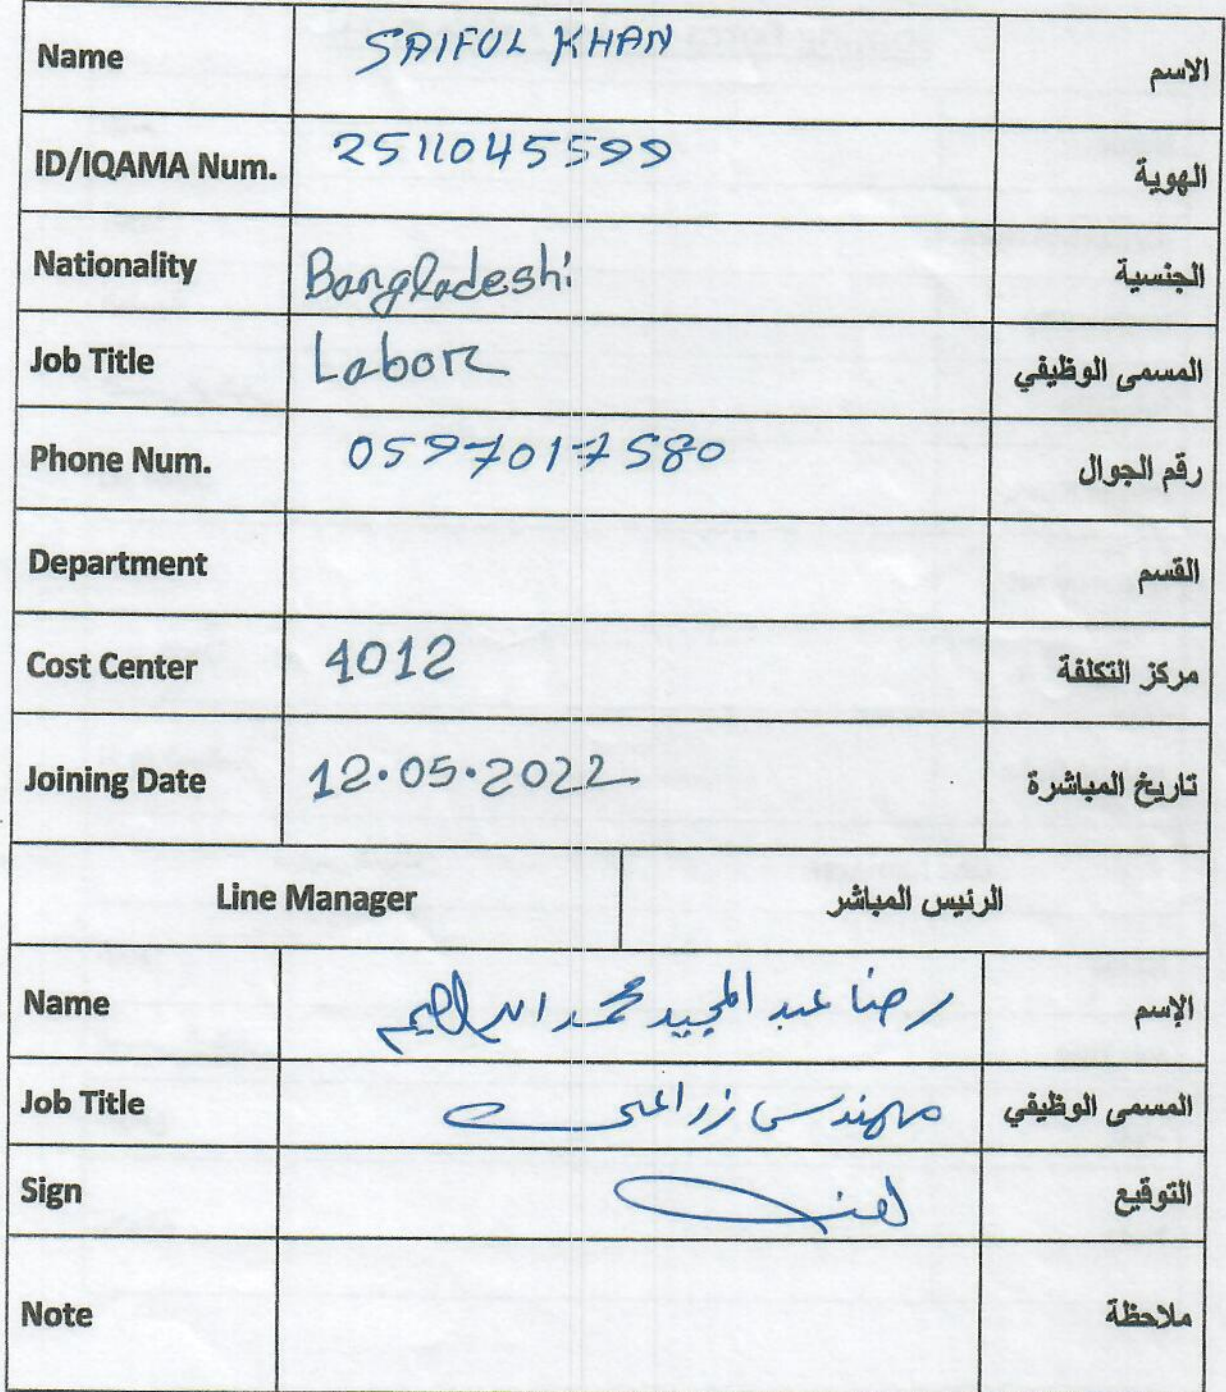 Name SAIFUL KHAN الاسم
ID/IQAMA Num. 2511045599 الهوية
Nationality Bangladeshi الجنسية
Job Title Labor المسمى الوظيفي
Phone Num. 0597017580 رقم الجوال
Department القسم
Cost Center 4012 مركز التكلفة
Joining Date 12.05.2022 تاريخ المباشرة
Line Manager الرئيس المباشر
Name رضا عبد المجيد محمد ابراهيم الإسم
Job Title مهندس زراعى المسمى الوظيفي
Sign التوقيع
Note ملاحظة